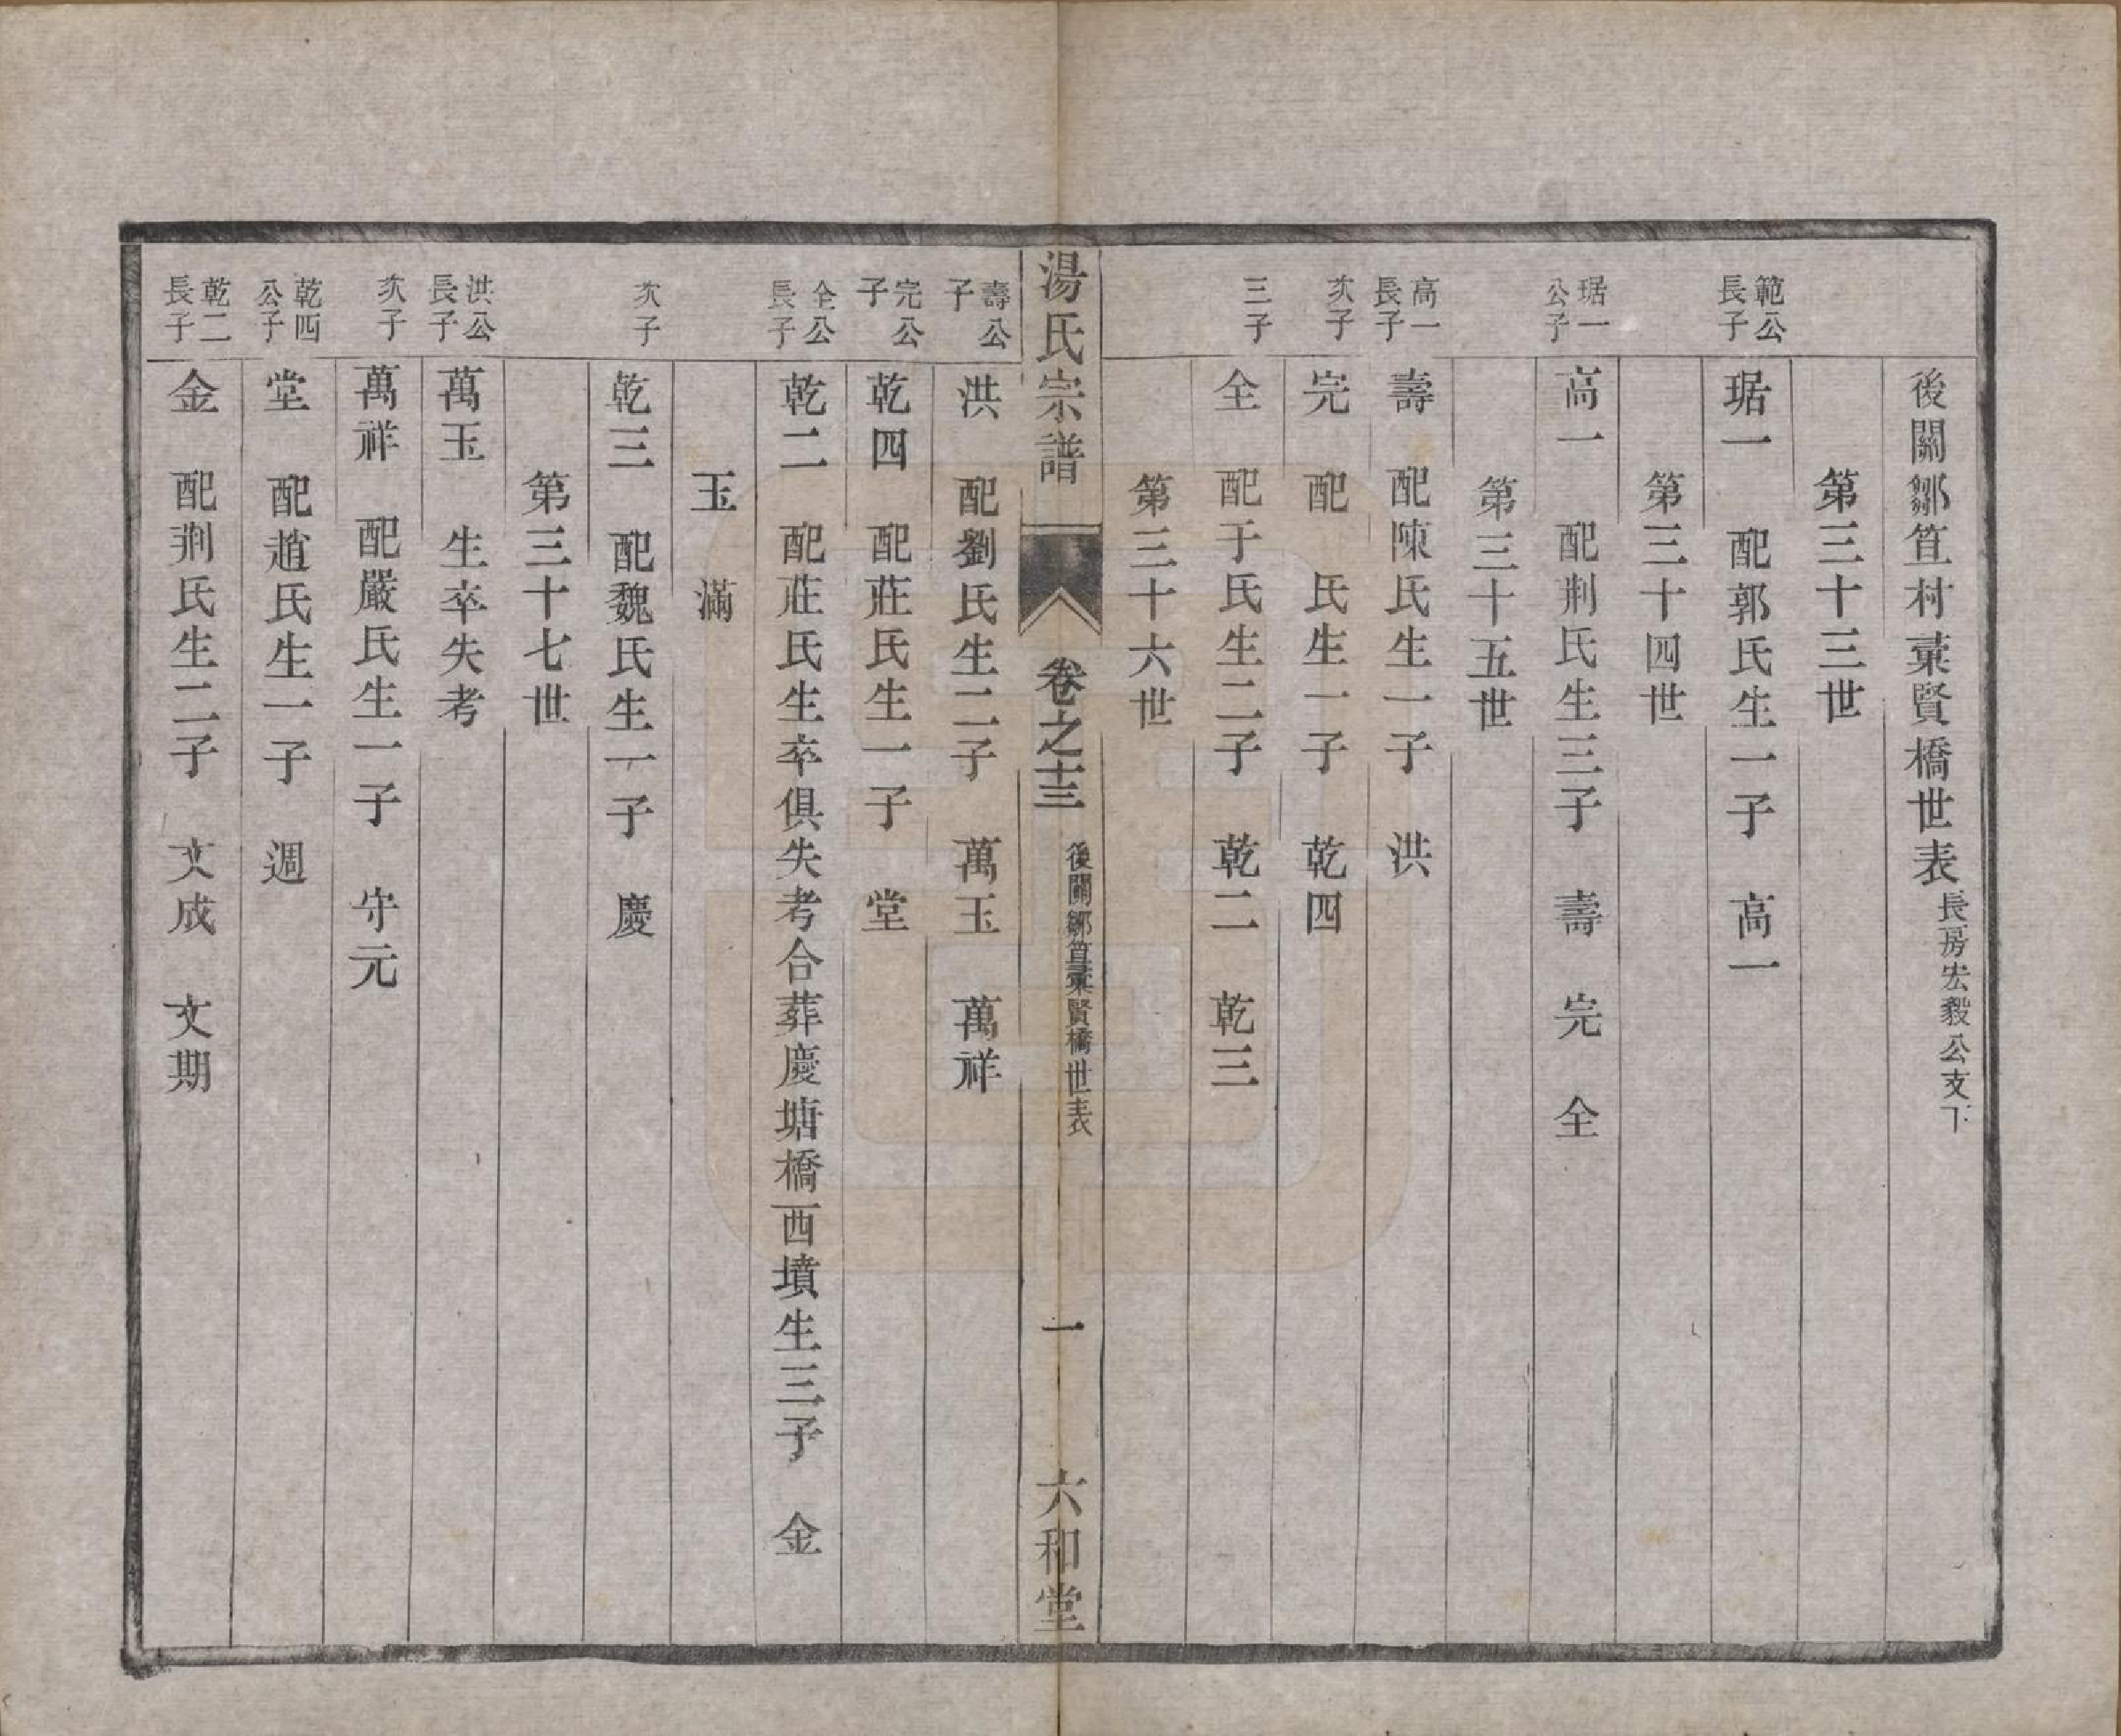 後關鄒笪村葉賢橋世表長房宏毅公支下
第三十三世
範公長子
琚一　配郭氏生一子　高一
第三十四世
琚一公子
高一　配荆氏生三子　壽　完　全
第三十五世
高一長子
壽　配陳氏生一子　洪
次子
完　配　氏生一子　乾四
三子
全　配于氏生二子　乾二　乾三
第三十六世
湯氏宗譜　卷之十三　後關鄒笪葉賢橋世表　一　六和堂
壽公子
洪　配劉氏生二子　萬玉　萬祥
完公子
乾四　配莊氏生一子　堂
全公長子
乾二　配莊氏生卒俱失考合葬慶塘橋西墳生三子　金
玉　滿
次子
乾三　配魏氏生一子　慶
第三十七世
洪公長子
萬玉　生卒失考
次子
萬祥　配嚴氏生一子　守元
乾四公子
堂　配趙氏生一子　週
乾二長子
金　配荆氏生二子　文成　文期